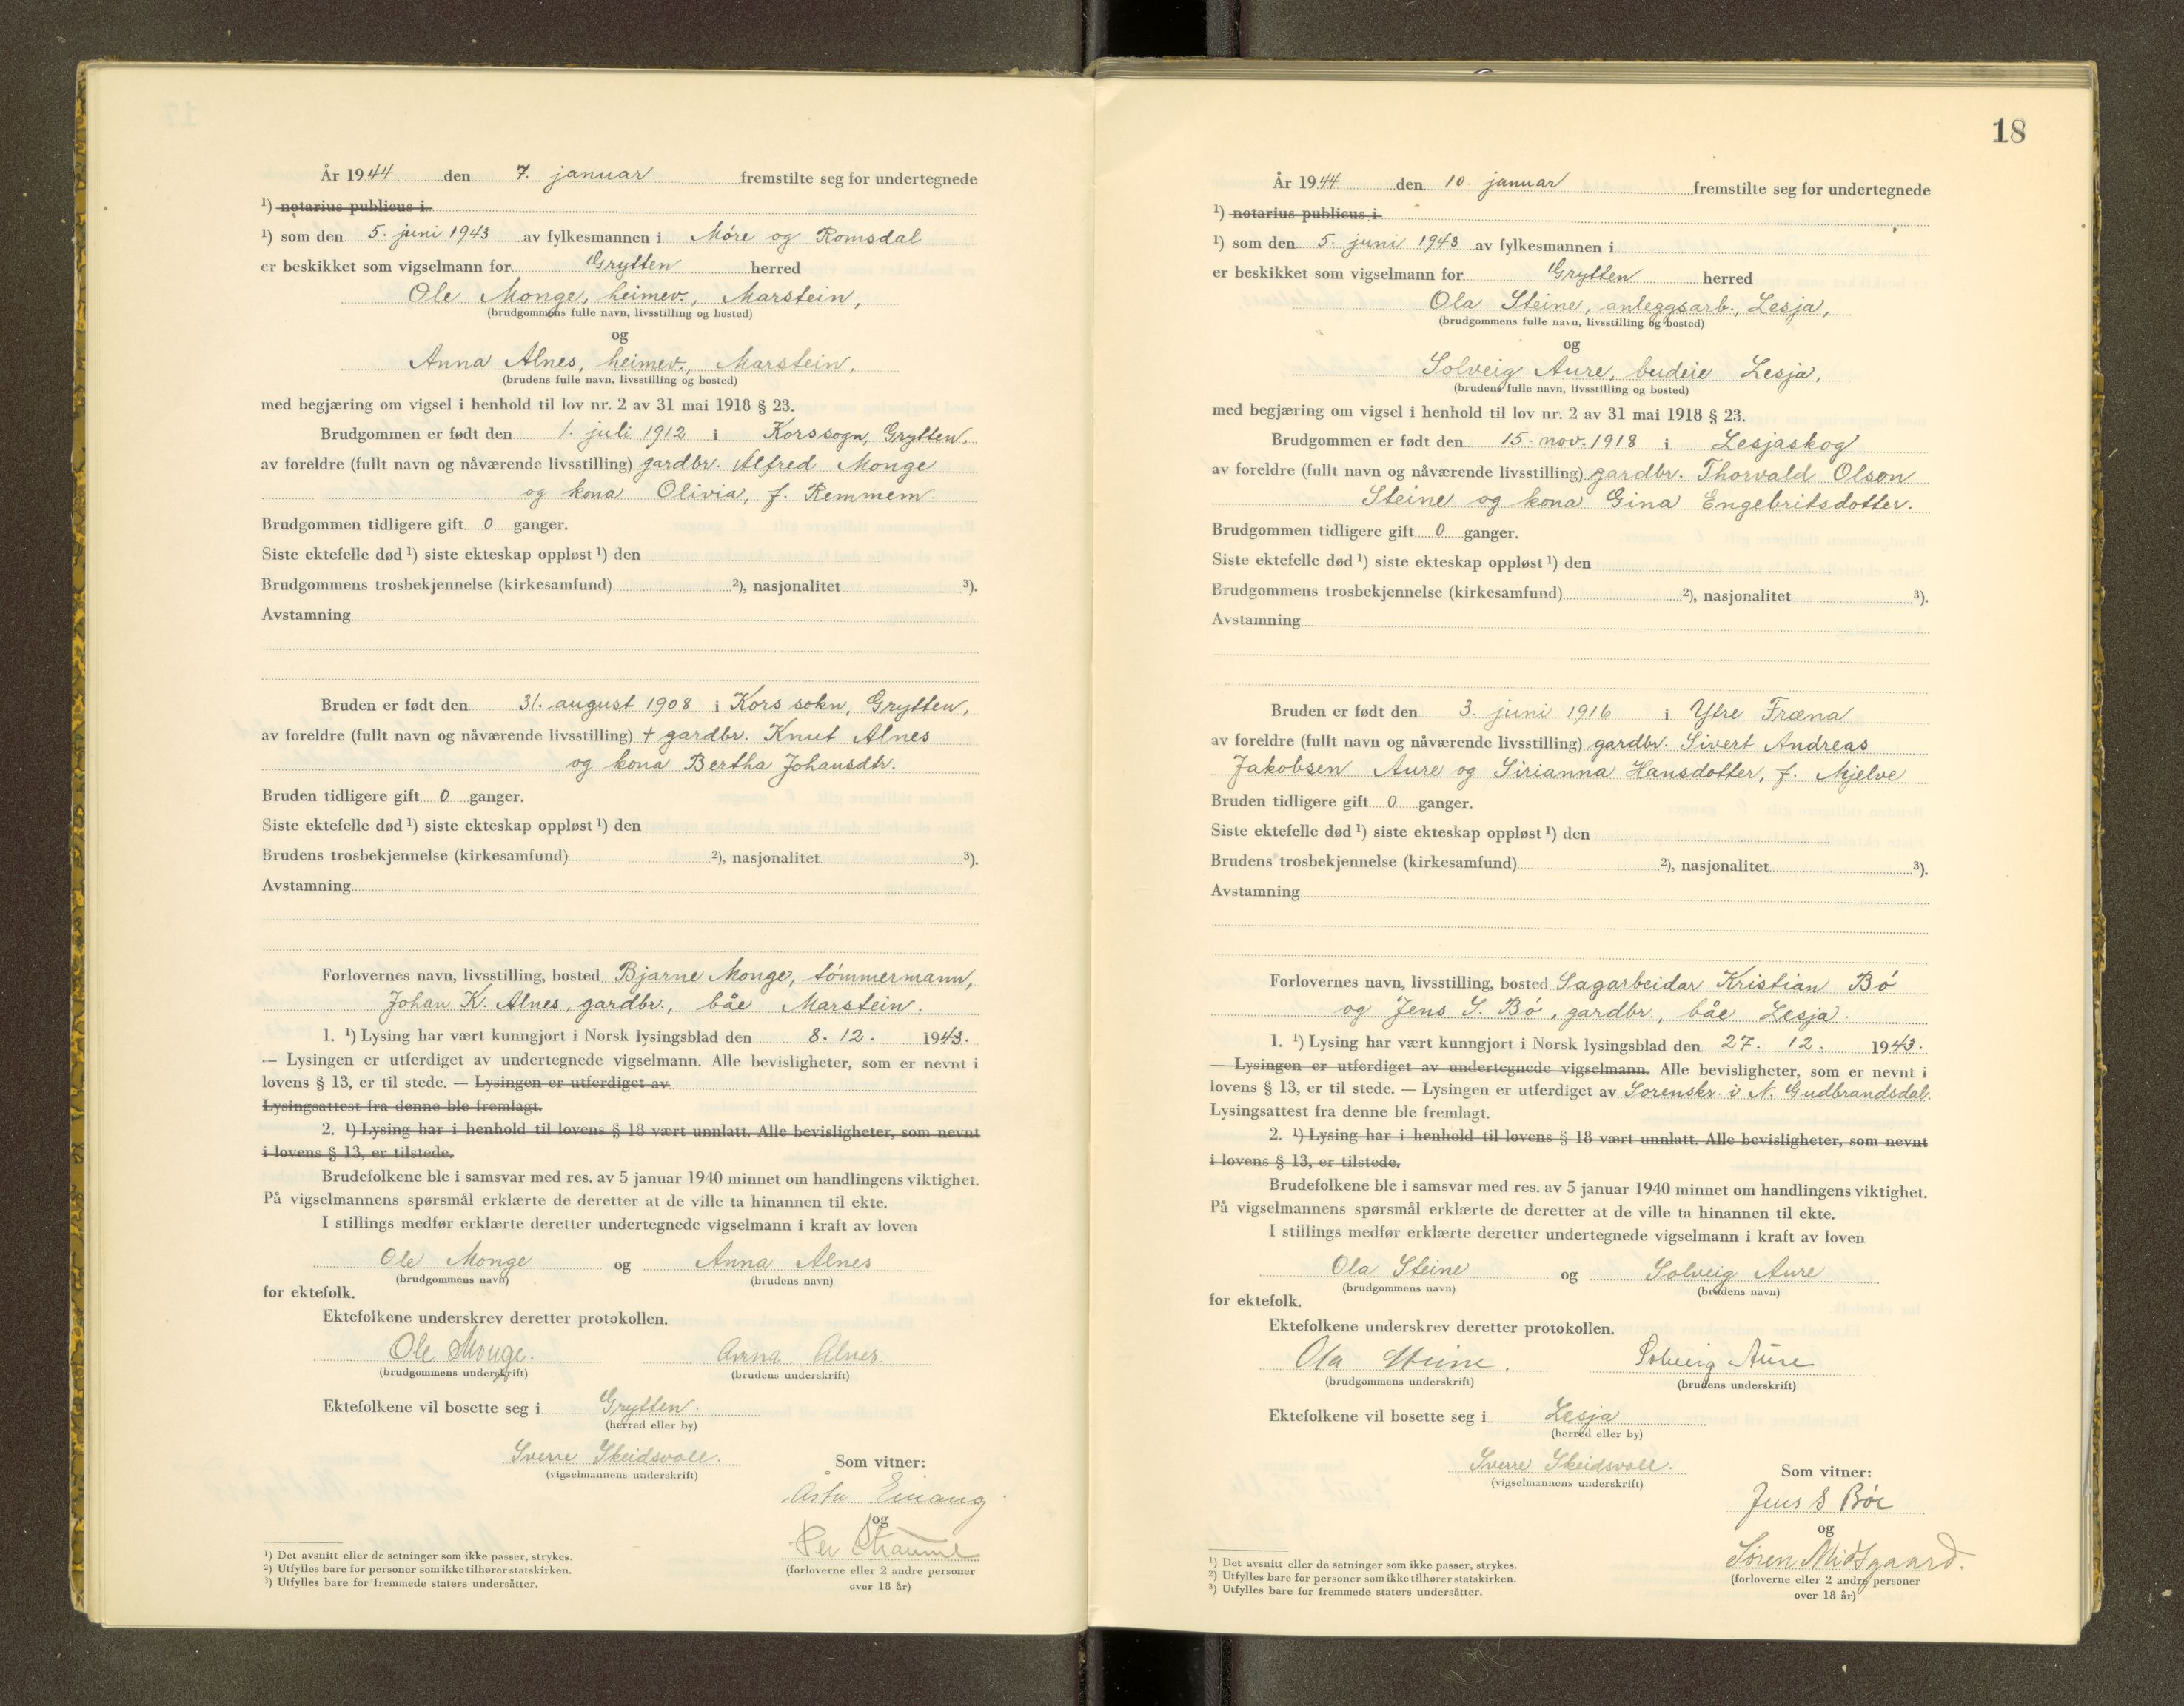 År 1944 den 7. januar fremstilte seg for undertegnede
¹) notarius publicus i
¹) som den 5. juni 1943 av fylkesmannen i Møre og Romsdal
er beskikket som vigselmann for Grytten herred
Ole Monge, heimev., Marstein,
(brudgommens fulle navn, livsstilling og bosted)
og
Anna Alnes, heimev., Marstein,
(brudens fulle navn, livsstilling og bosted)
med begjæring om vigsel i henhold til lov nr. 2 av 31 mai 1918 § 23.
Brudgommen er født den 1. juli 1912 i Korssogn, Grytten,
av foreldre (fullt navn og nåværende livsstilling) gardbr. Alfred Monge
og kona Olivia, f. Remmem.
Brudgommen tidligere gift 0 ganger.
Siste ektefelle død ¹) siste ekteskap oppløst ¹) den
Brudgommens trosbekjennelse (kirkesamfund) ²), nasjonalitet ³).
Avstamning
Bruden er født den 31. august 1908 i Kors sokn, Grytten,
av foreldre (fullt navn og nåværende livsstilling) + gardbr. Knut Alnes
og kona Bertha Johansdtr.
Bruden tidligere gift 0 ganger.
Siste ektefelle død ¹) siste ekteskap oppløst ¹) den
Brudens trosbekjennelse (kirkesamfund) ²), nasjonalitet ³).
Avstamning
Forlovernes navn, livsstilling, bosted Bjarne Monge, tømmermann,
Johan K. Alnes, gardbr., båe Marstein.
1. ¹) Lysing har vært kunngjort i Norsk lysingsblad den 8. 12. 1943.
— Lysingen er utferdiget av undertegnede vigselmann. Alle bevisligheter, som er nevnt i
lovens § 13, er til stede. — Lysingen er utferdiget av
Lysingsattest fra denne ble fremlagt.
2. ¹) Lysing har i henhold til lovens § 18 vært unnlatt. Alle bevisligheter, som nevnt
i lovens § 13, er tilstede.
Brudefolkene ble i samsvar med res. av 5 januar 1940 minnet om handlingens viktighet.
På vigselmannens spørsmål erklærte de deretter at de ville ta hinannen til ekte.
I stillings medfør erklærte deretter undertegnede vigselmann i kraft av loven
Ole Monge og Anna Alnes
(brudgommens navn) (brudens navn)
for ektefolk.
Ektefolkene underskrev deretter protokollen.
Ole Monge. Anna Alnes.
(brudgommens underskrift) (brudens underskrift)
Ektefolkene vil bosette seg i Grytten.
(herred eller by)
Sverre Skeidsvoll.
(vigselmannens underskrift)
Som vitner:
Åsta Einang
og
Per
(forloverne eller 2 andre personer
over 18 år)
¹) Det avsnitt eller de setninger som ikke passer, strykes.
²) Utfylles bare for personer som ikke tilhører statskirken.
³) Utfylles bare for fremmede staters undersåtter.
18
År 1944 den 10. januar fremstilte seg for undertegnede
¹) notarius publicus i
¹) som den 5. juni 1943 av fylkesmannen i
er beskikket som vigselmann for Grytten herred
Ola Steine, anleggsarb., Lesja,
(brudgommens fulle navn, livsstilling og bosted)
og
Solveig Aure, budeie Lesja,
(brudens fulle navn, livsstilling og bosted)
med begjæring om vigsel i henhold til lov nr. 2 av 31 mai 1918 § 23.
Brudgommen er født den 15. nov. 1918 i Lesjaskog
av foreldre (fullt navn og nåværende livsstilling) gardbr. Thorvald Olson
Steine og kona Gina Engebritsdotter.
Brudgommen tidligere gift 0 ganger.
Siste ektefelle død ¹) siste ekteskap oppløst ¹) den
Brudgommens trosbekjennelse (kirkesamfund) ²), nasjonalitet ³).
Avstamning
Bruden er født den 3. juni 1916 i Ytre Fræna
av foreldre (fullt navn og nåværende livsstilling) gardbr. Sivert Andreas
Jakobsen Aure og Sirianna Hansdotter, f. Mjelve
Bruden tidligere gift 0 ganger.
Siste ektefelle død ¹) siste ekteskap oppløst ¹) den
Brudens trosbekjennelse (kirkesamfund) ²), nasjonalitet ³).
Avstamning
Forlovernes navn, livsstilling, bosted Sagarbeidar Kristian Bø
og Jens S. Bø, gardbr., båe Lesja.
1. ¹) Lysing har vært kunngjort i Norsk lysingsblad den 27. 12. 1943.
— Lysingen er utferdiget av undertegnede vigselmann. Alle bevisligheter, som er nevnt i
lovens § 13, er til stede. — Lysingen er utferdiget av Sorenskr. i N. Gudbrandsdal.
Lysingsattest fra denne ble fremlagt.
2. ¹) Lysing har i henhold til lovens § 18 vært unnlatt. Alle bevisligheter, som nevnt
i lovens § 13, er tilstede.
Brudefolkene ble i samsvar med res. av 5 januar 1940 minnet om handlingens viktighet.
På vigselmannens spørsmål erklærte de deretter at de ville ta hinannen til ekte.
I stillings medfør erklærte deretter undertegnede vigselmann i kraft av loven
Ola Steine og Solveig Aure
(brudgommens navn) (brudens navn)
for ektefolk.
Ektefolkene underskrev deretter protokollen.
Ola Steine. Solveig Aure
(brudgommens underskrift) (brudens underskrift)
Ektefolkene vil bosette seg i Lesja
(herred eller by)
Sverre Skeidsvoll.
(vigselmannens underskrift)
Som vitner:
Jens S Bøe
og
Søren Midtgaard.
(forloverne eller 2 andre personer
over 18 år)
¹) Det avsnitt eller de setninger som ikke passer, strykes.
²) Utfylles bare for personer som ikke tilhører statskirken.
³) Utfylles bare for fremmede staters undersåtter.